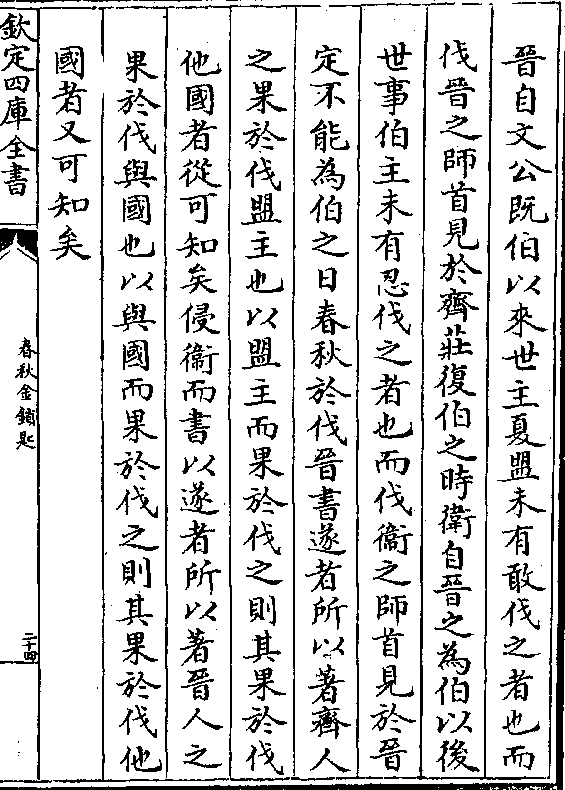 晉自文公既伯以來世主夏盟未有敢伐之者也而
伐晉之師首見於齊莊復伯之時衛自晉之為伯以後
世事伯主未有忍伐之者也而伐衞之師首見於晉
定不能為伯之日春秋於伐晉書遂者所以著齊人
之果於伐盟主也以盟主而果於伐之則其果於伐
他國者從可知矣侵衞而書以遂者所以著晉人之
果於伐與國也以與國而果於伐之則其果於伐他
國者又可知矣
欽定四庫全書
春秋金鎖匙
二十四